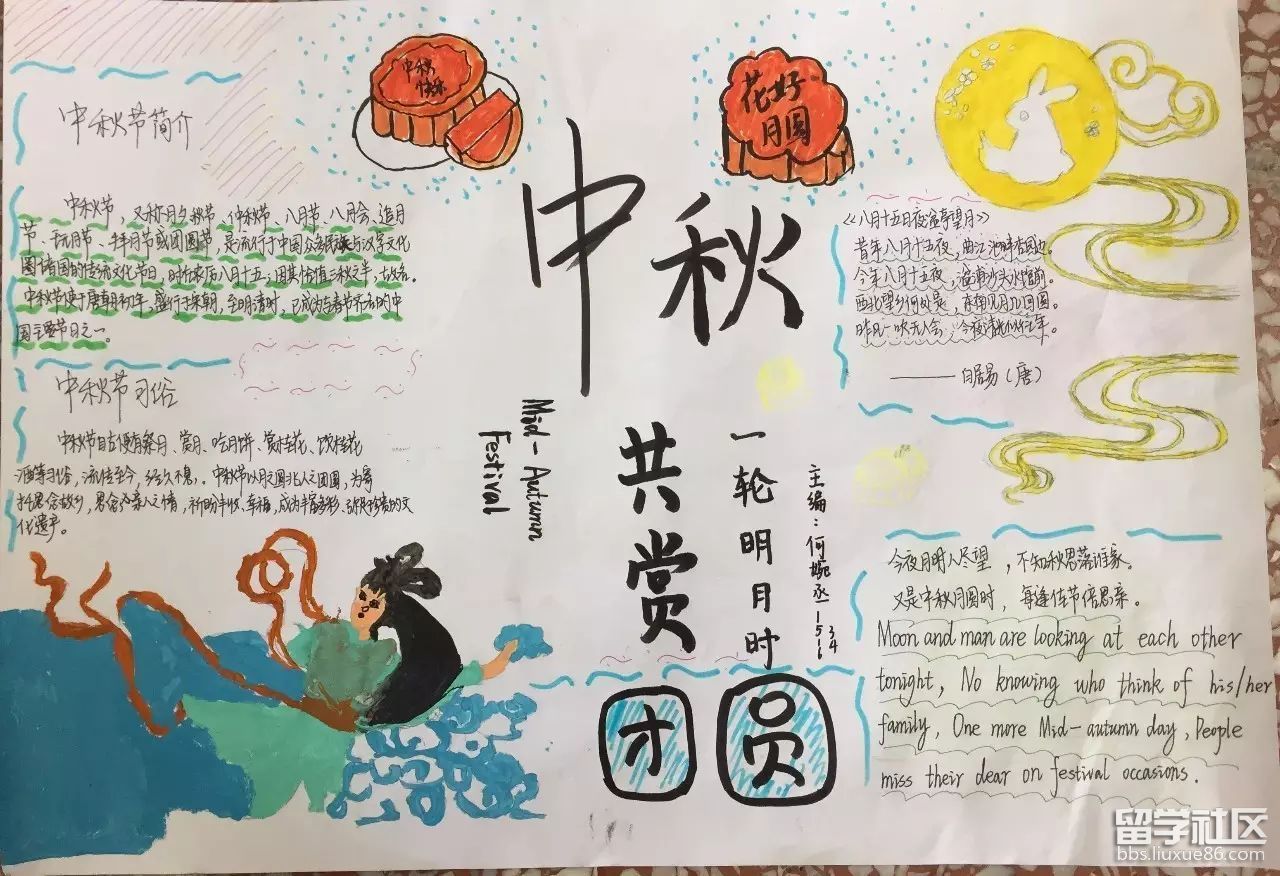 中秋节简介
中秋节，又称月夕、秋节、仲秋节、八月节、八月会、追月
节、玩月节、拜月节或团圆节，是流行于中国众多民族与汉字文化
圈诸国的传统文化节日，时在农历八月十五；因其恰值三秋之半，故名。
中秋节始于唐朝初年，盛行于宋朝，至明清时，已成为与春节齐名的中
国主要节日之一。
中秋节习俗
中秋节自古便有祭月、赏月、吃月饼、赏桂花、饮桂花
酒等习俗，流传至今，经久不息。中秋节以月之圆兆人之团圆，为寄
托思念故乡，思念亲人之情，祈盼丰收、幸福，成为丰富多彩、弥足珍贵的文
化遗产。
中秋
快乐
花好
月圆
中秋
Mid-Autumn
Festival
共赏
一轮明月时
团员
主编：何婉丞
《八月十五日夜湓亭望月》
昔年八月十五夜，曲江池畔杏园边。
今年八月十五夜，湓浦沙头水馆前。
西北望乡何处是，东南见月几回圆。
昨风一吹无人会，今夜清光似往年。
——白居易（唐）
今夜月明人尽望，不知秋思落谁家。
又是中秋月圆时，每逢佳节倍思亲。
Moon and man are looking at each other
tonight, No knowing who think of his/her
family, One more Mid-autumn day, People
miss their dear on festival occasions.
留学社区
bbs.liuxue86.com